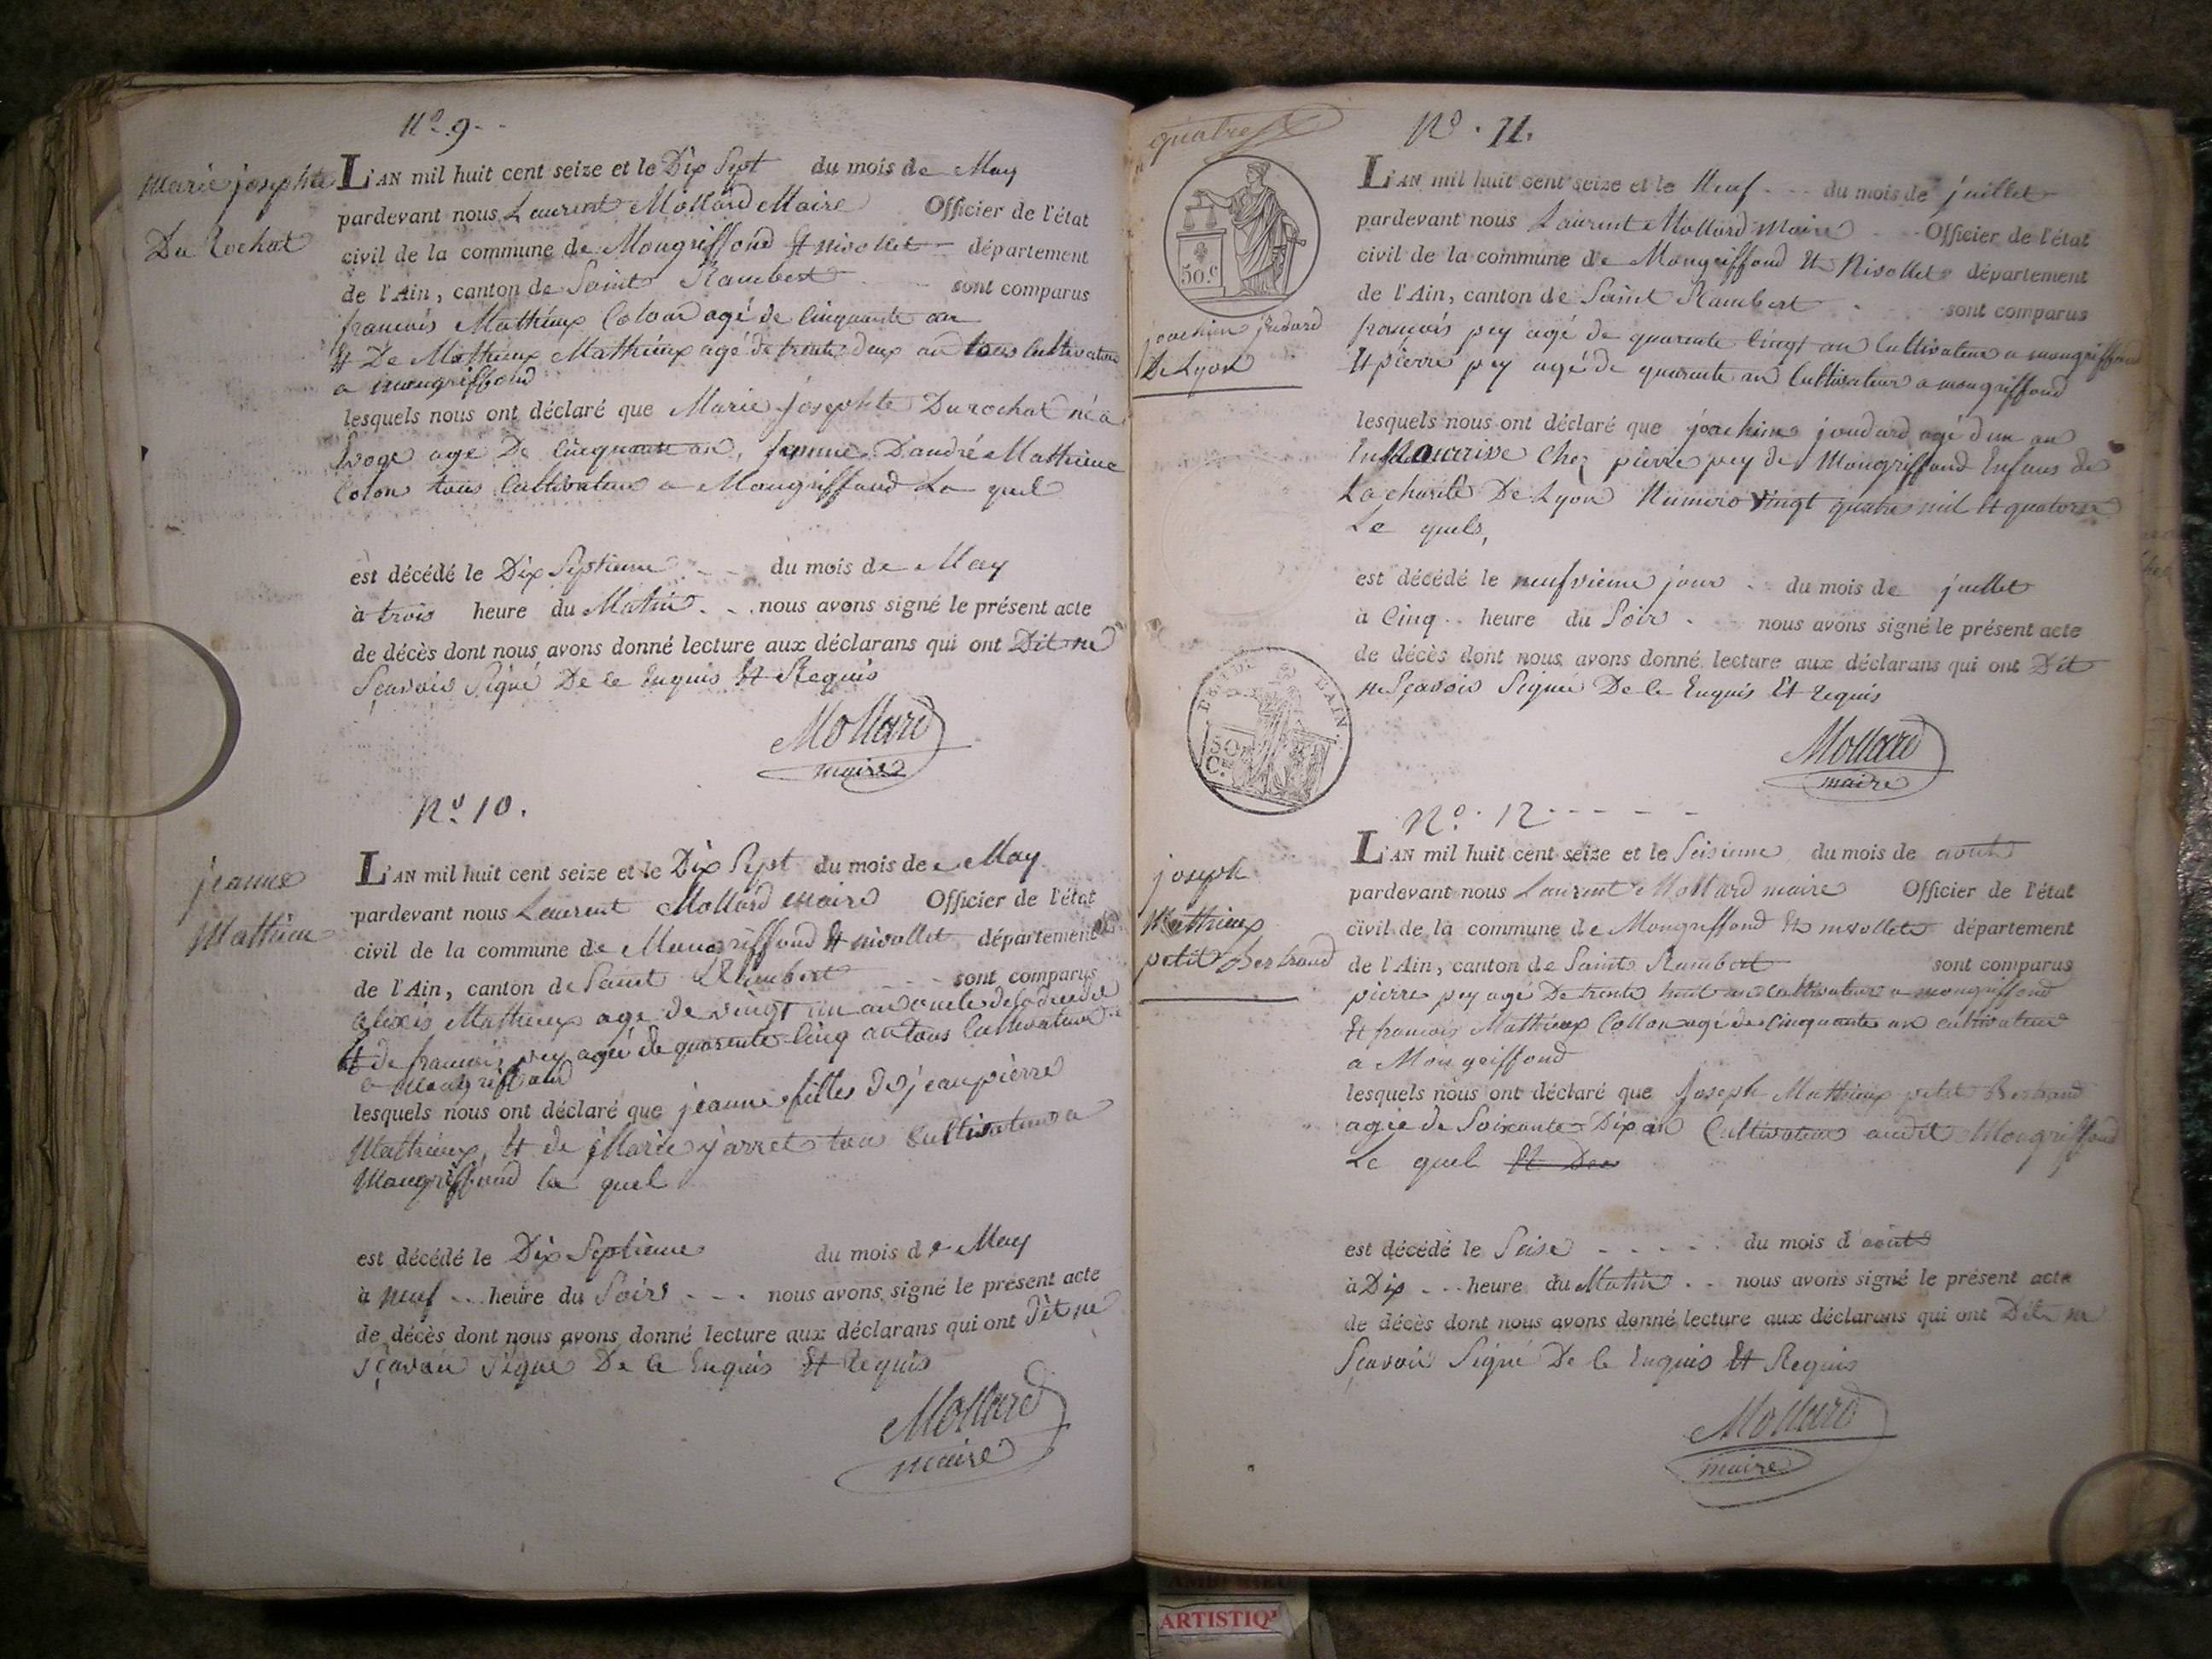 N.º 9.
Marie josephte
Du Rochat
L'AN mil huit cent seize et le Dix Sept du mois de May
pardevant nous Laurent Mollard Maire Officier de l'état
civil de la commune de Mongriffond Et nivollet département
de l'Ain, canton de Saint Rambert sont comparus
francois Mathieux Colon agé de Cinquante an
Et De Mathieux Mathieux agé de trente deux an tous Cultivateur
a mongriffond
lesquels nous ont déclaré que Marie josephte Durochat né a
agé De Cinquante an, femme D'andré Mathieux
Colon tous Cultivateur a Mongriffond La quel
est décédé le Dix Septieme du mois de May
à trois heure du Matin nous avons signé le présent acte
de décès dont nous avons donné lecture aux déclarans qui ont Dit ne
Sçavoir Signé De ce Enquis Et Requis
Mollard
maire
N.º 10.
jeanne
Mathieu
L'AN mil huit cent seize et le Dix Sept du mois de May
pardevant nous Laurent Mollard maire Officier de l'état
civil de la commune de Mongriffond Et nivollet département
de l'Ain, canton de Saint Rambert sont comparus
alexis Mathieux agé de vingt un an
Et de francois pey agé de quarente Cinq an tous Cultivateur
a Mongriffond
lesquels nous ont déclaré que jeanne filles de jean pierre
Mathieux, Et de Marie jarret tou Cultivateur a
Mongriffond la quel
est décédé le Dix Septieme du mois de May
à neuf heure du Soir nous avons signé le présent acte
de décès dont nous avons donné lecture aux déclarans qui ont dit ne
sçavoir signé De ce Enquis Et requis
Mollard
maire
quatre
N.º 11.
50.c
joachim judard
De Lyon
L'AN mil huit cent seize et le Neuf du mois de juillet
pardevant nous Laurent Mollard maire Officier de l'état
civil de la commune de Mongriffond Et Nivollet département
de l'Ain, canton de Saint Rambert sont comparus
francois pey agé de quarente Cinq an Cultivateur a mongriffond
Et pierre pey agé de quarante an Cultivateur a mongriffond
lesquels nous ont déclaré que joachim joudard agé d'un an
En Nourrise Chez pierre pey de Mongriffond Enfans de
La charité De Lyon Numero vingt quatre mil Et quatorse
Le quels,
est décédé le neufvieme jour du mois de juillet
à Cinq heure du Soir nous avons signé le présent acte
de décès dont nous avons donné lecture aux déclarans qui ont Dit
ne Sçavoir Signé De ce Enquis Et requis
Mollard
maire
50
C.
N.º 12
joseph
Mathieux
petit Bertrand
L'AN mil huit cent seize et le Seisieme du mois de aout
pardevant nous Laurent Mollard maire Officier de l'état
civil de la commune de Mongriffond Et nivollet département
de l'Ain, canton de Saint Rambert sont comparus
pierre pey agé De trente huit an Cultivateur a mongriffond
Et francois Mathieux Collon agé de Cinquante an cultivateur
a Mongriffond
lesquels nous ont déclaré que Joseph Mathieux petit Bertrand
agée de Soixante Dix an Cultivateur audit Mongriffond
Le quel
est décédé le Seise du mois d aout
à Dix heure du Matin nous avons signé le présent acte
de décès dont nous avons donné lecture aux déclarans qui ont Dit ne
Sçavoir Signé De ce Enquis Et Requis
Mollard
maire
ARTISTIQ